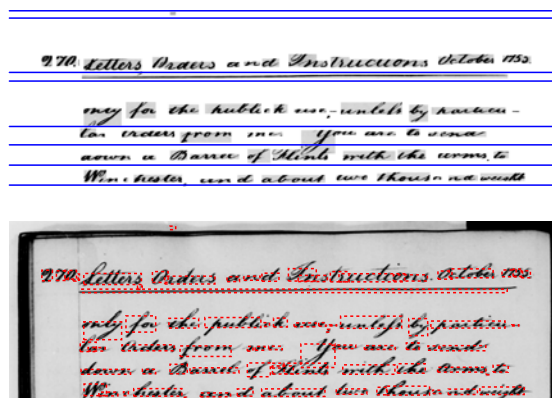 270. Letters Orders and Instructions October 1755.
only for the publick use, unless by particu-
lar orders from me. You are to send
down a Barrel of Flints with the arms to
Winchester, and about two thousand weight
270. Letters Orders and Instructions October 1755.
only for the publick use, unless by particu-
lar orders from me. You are to send
down a Barrel of Flints with the arms to
Winchester, and about two thousand weight